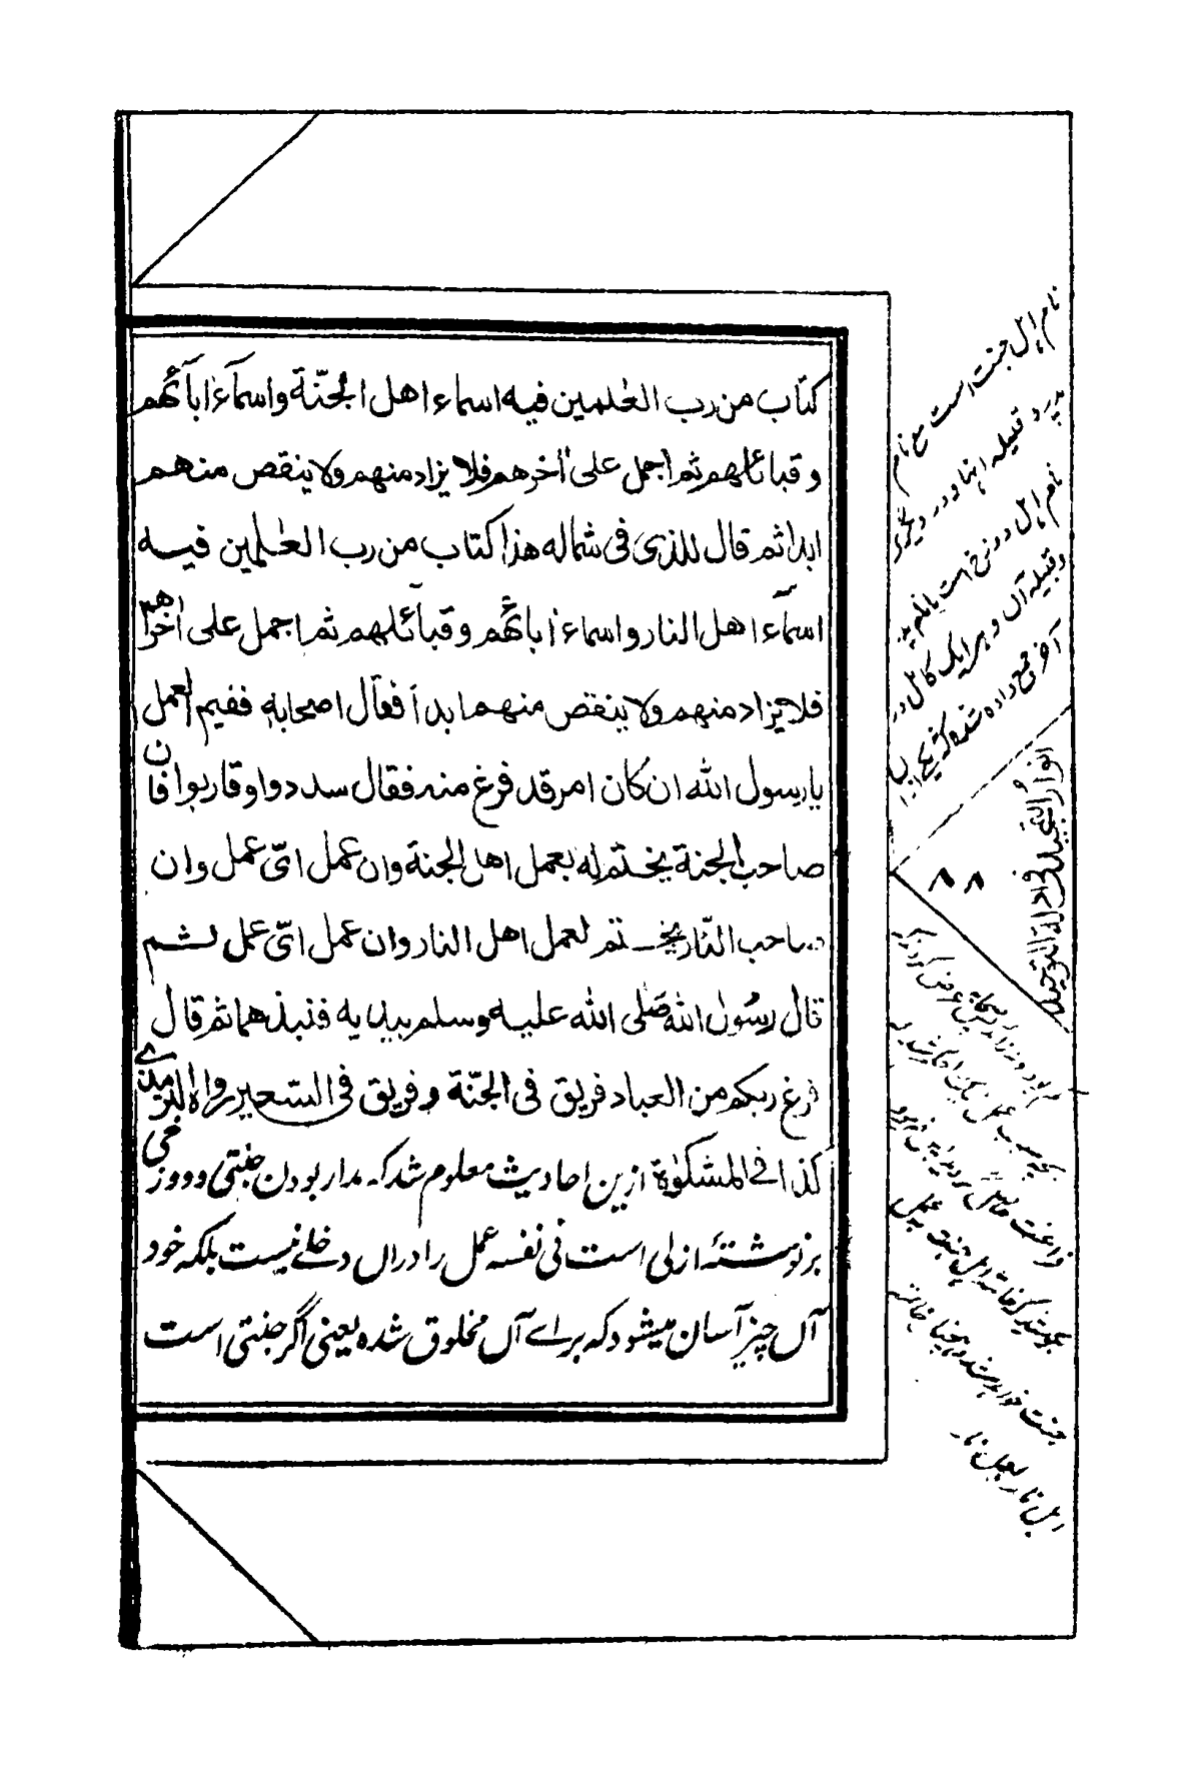 كتاب من رب العٰلمين فيه اسماء اهل الجنّة واسمآء اٰبآئهم
و قبائلهم ثم اجمل على اٰخرهم فلا يزاد منهم ولا ينقص منهم
ابدا ثم قال للذى فى شماله هذا كتاب من رب العٰلمين فيه
اسمآء اهل النار واسماء اٰبائهم و قبآئلهم ثم اجمل على اٰخرهم
فلا يزاد منهم ولا ينقص منهم ابدا فقال اصحابه ففيم العمل
يا رسول الله ان كان امر قد فرغ منه فقال سددوا وقاربوا فان
صاحب الجنة يختم له بعمل اهل الجنة وان عمل اىّ عمل وان
صاحب النّار يختم لعمل اهل النار وان عمل اىّ عمل لثم
قال رسول الله صلى الله عليه وسلم بيديه فنبذهما ثم قال
فرغ ربكم من العباد فريق فى الجنّة و فريق فى السّعير رواه الترمذے
كذا فے المشكوٰة ازين احاديث معلوم شد كه مدار بودن جنتى و دوزخى
بر نوشتهٔ ازلى است فى نفسه عمل را دراں دخلے نيست بلكه خود
آں چيز آسان ميشود كه براے آں مخلوق شده يعنى اگر جنتى است
نام اہل جنت است مع نام
پدر و قبیلہ اینا و در دیگری
نام اہل دوزخ است با نام پدر
و قبیلہ آں و ہر ایک کامل در
آخر جمع داده شده
انوار التمجيد فى ادلة التوحيد
۸۸
جنت خواہد شد و ہمچنیں خاتمہ
اہل نار بعمل نار